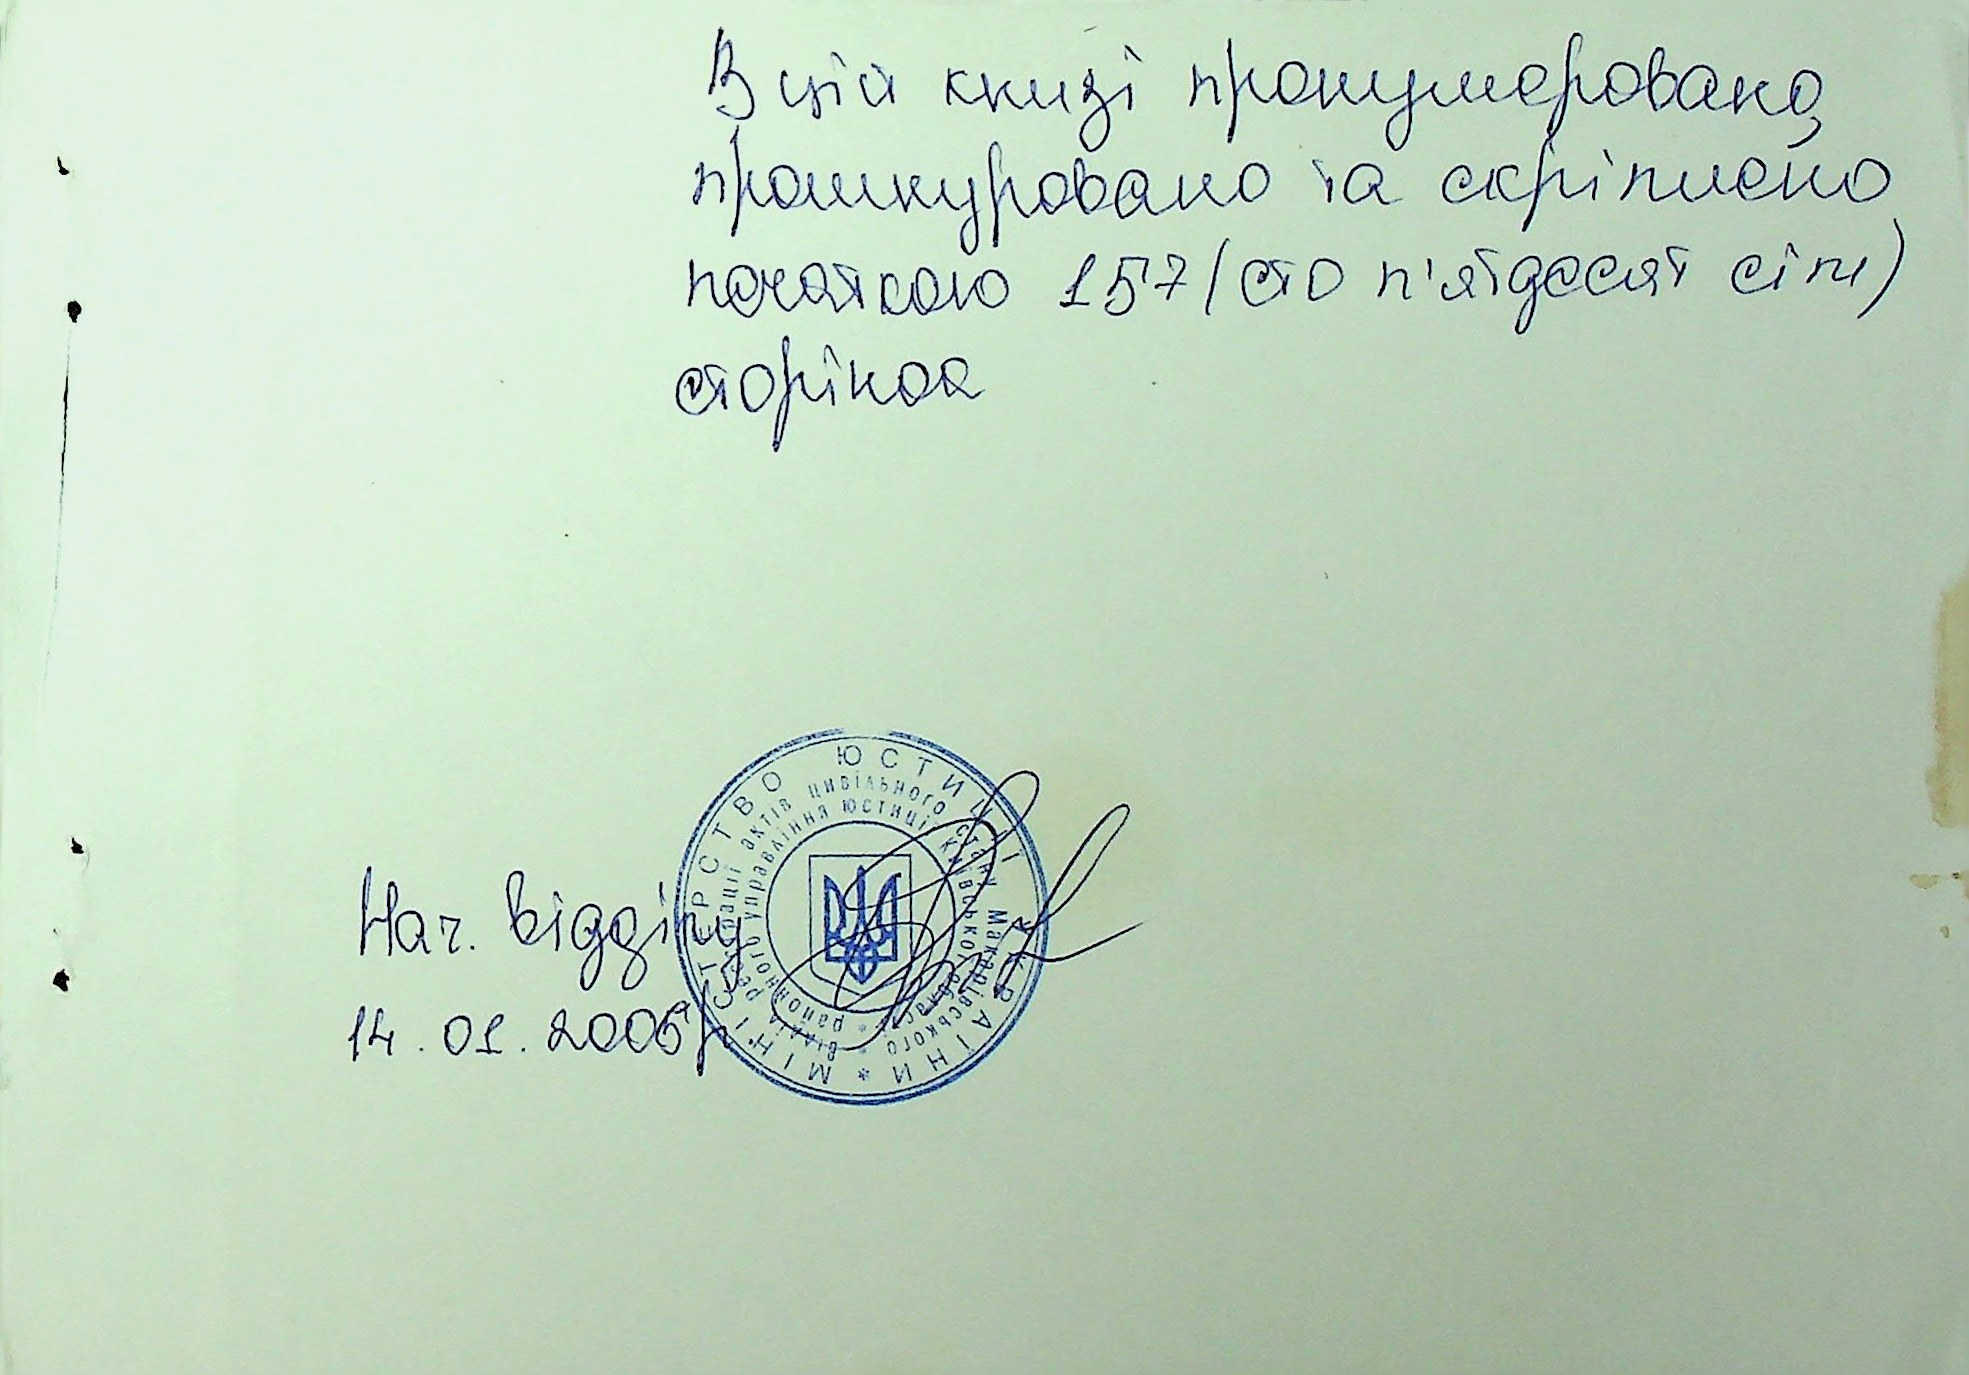 В цій книзі пронумеровано,
прошнуровано та скріплено
печаткою 157 (сто п'ятдесят сім)
сторінок
Нач. відділу
14.01.2005р.
МІНІСТЕРСТВО ЮСТИЦІЇ УКРАЇНИ *
Відділ реєстрації актів цивільного стану Макарівського *
районного управління юстиції Київської області *